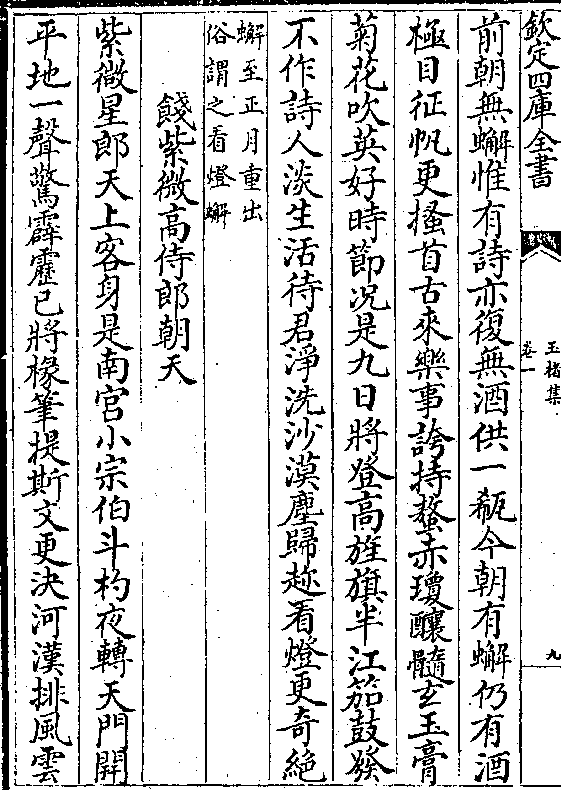 欽定四庫全書
玉楮集
卷一
九
前朝無蠏惟有詩亦復無酒供一瓻今朝有蠏仍有酒
極目征帆更搔首古來樂事誇持螯赤瓊釀髓玄玉膏
菊花吹英好時節况是九日將登高旌旗半江笳鼓發
不作詩人淡生活待君淨洗沙漠塵歸趂看燈更奇絶
蠏至正月重出
俗謂之看燈蠏
餞紫微高侍郎朝天
紫微星郎天上客身是南宮小宗伯斗杓夜轉天門開
平地一聲驚霹靂已將椽筆提斯文更決河漢排風雲